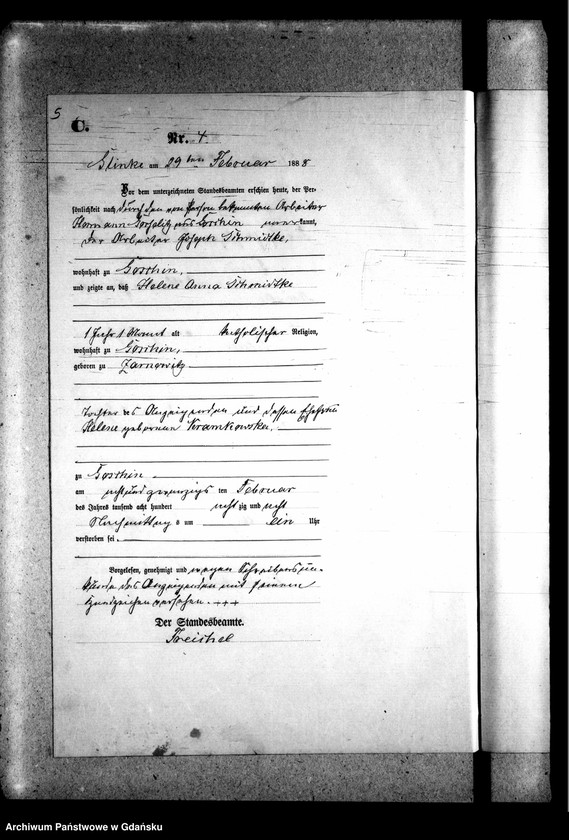 5
C.
Nr. 4.
Glinke am 29 ten Februar 1888
Vor dem unterzeichneten Standesbeamten erschien heute, der Per-
sönlichkeit nach durch den von Person bekannten Arbeiter
Hermann aus Goschin anerkannt,
der Arbeiter Joseph Schmidtke,
wohnhaft zu Goschin,
und zeigte an, daß Helene Anna Schmidtke
1 Jahr 1 Monat alt katholischer Religion,
wohnhaft zu Goschin,
geboren zu Zarnowitz
Tochter des Anzeigenden und dessen Ehefrau
Helene geborenen Kramkowska,
zu Goschin
am acht und zwanzigs ten Februar
des Jahres tausend acht hundert acht zig und acht
Nachmittag s um ein Uhr
verstorben sei.
Vorgelesen, genehmigt und wegen Schreibensun-
kunde des Anzeigenden mit seinem
Handzeichen versehen. +++
Der Standesbeamte.
Archiwum Państwowe w Gdańsku